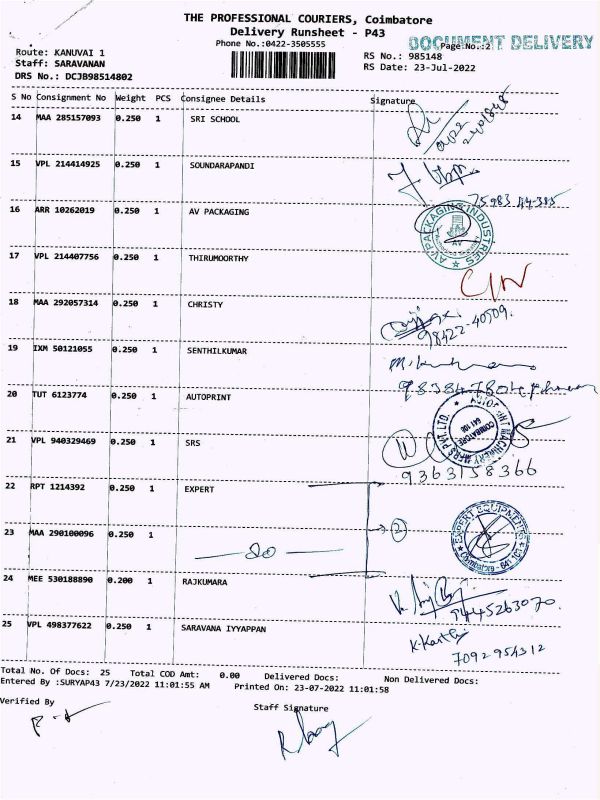 THE PROFESSIONAL COURIERS, Coimbatore
Delivery Runsheet - P43
Phone No.:0422-3505555
DOCUMENT DELIVERY
Page No.:2
Route: KANUVAI 1
Staff: SARAVANAN
DRS No.: DCJB98514802
RS No.: 985148
RS Date: 23-Jul-2022
S No Consignment No Weight PCS Consignee Details Signature
14 MAA 285157093 0.250 1 SRI SCHOOL
15 VPL 214414925 0.250 1 SOUNDARAPANDI
16 ARR 10262019 0.250 1 AV PACKAGING
AV PACKAGING INDUSTRIES
AV
17 VPL 214407756 0.250 1 THIRUMOORTHY
18 MAA 292057314 0.250 1 CHRISTY
98422-40509.
19 IXM 50121055 0.250 1 SENTHILKUMAR
20 TUT 6123774 0.250 1 AUTOPRINT
COIMBATORE
21 VPL 940329469 0.250 1 SRS
9363158366
22 RPT 1214392 0.250 1 EXPERT
EXPERT EQUIPMENTS
Coimbatore - 641 103
2
23 MAA 290100096 0.250 1
— do —
24 MEE 530188890 0.200 1 RAJKUMARA
9445263070.
25 VPL 498377622 0.250 1 SARAVANA IYYAPPAN
7092954312
Total No. Of Docs: 25 Total COD Amt: 0.00 Delivered Docs: Non Delivered Docs:
Entered By :SURYAP43 7/23/2022 11:01:55 AM Printed On: 23-07-2022 11:01:58
Verified By
Staff Signature